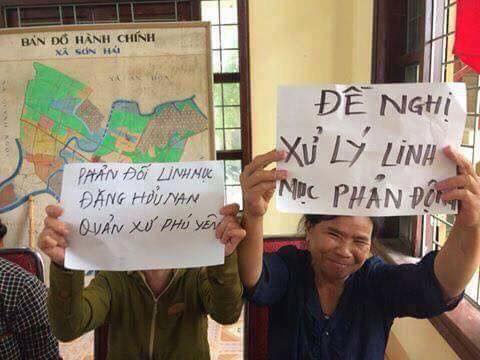 BẢN ĐỒ HÀNH CHÍNH
XÃ SƠN HẢI
XÃ AN HÒA
PHẢN ĐỐI LINH MỤC
ĐẶNG HỮU NAM
QUẢN XỨ PHÚ YÊN
ĐỀ NGHỊ
XỬ LÝ LINH
MỤC PHẢN ĐỘNG